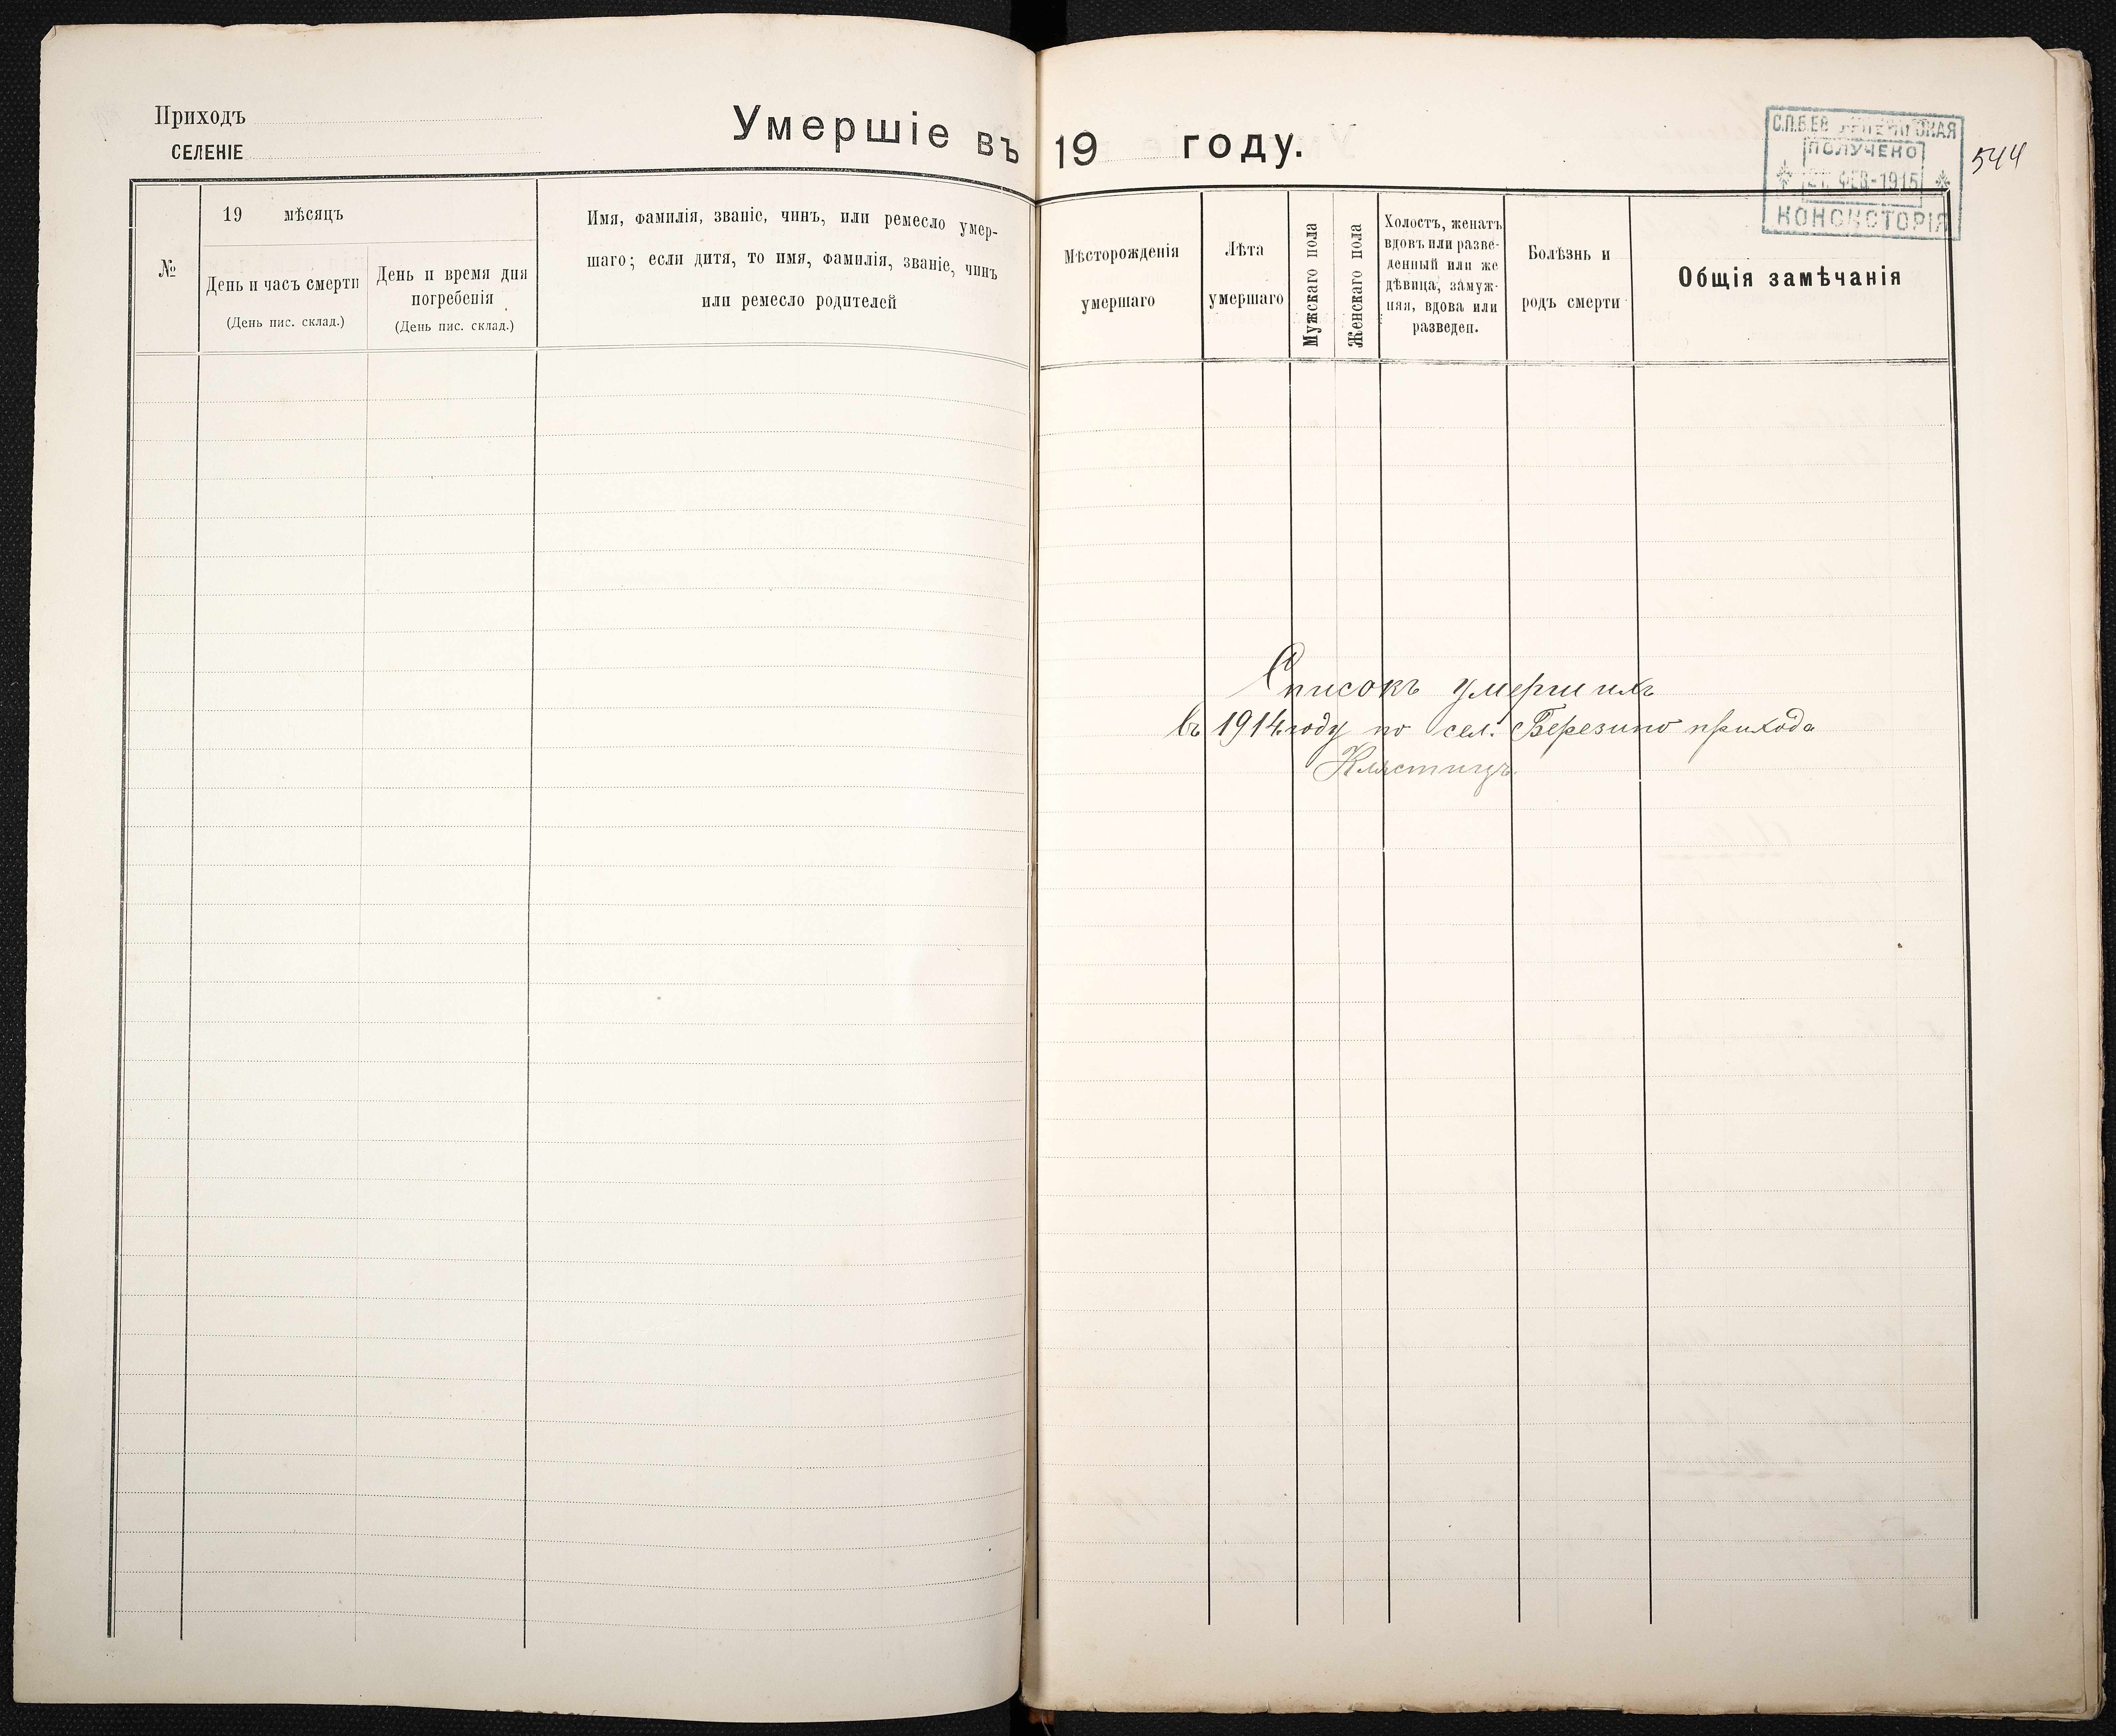 Приходъ
СЕЛЕНІЕ
Умершіе въ 19 году.
С.П.Б.ЕВ
ПОЛУЧЕНО
21. ФЕВ-1915
КОНСИСТОРІЯ
544
№
19 мѣсяцъ
День и часъ смерти
(День пис. склад.)
День и время дня
погребенія
(День пис. склад.)
Имя, фамилія, званіе, чинъ, или ремесло умер-
шаго; если дитя, то имя, фамилія, званіе, чинъ
или ремесло родителей
Мѣсторожденія
умершаго
Лѣта
умершаго
Мужскаго пола
Женскаго пола
Холостъ, женатъ
вдовъ или разве-
денный или же
дѣвица, замуж-
няя, вдова или
разведен.
Болѣзнь и
родъ смерти
Общія замѣчанія
Списокъ умершихъ
въ 1914 году по сел. Березино прихода
Клястицъ.